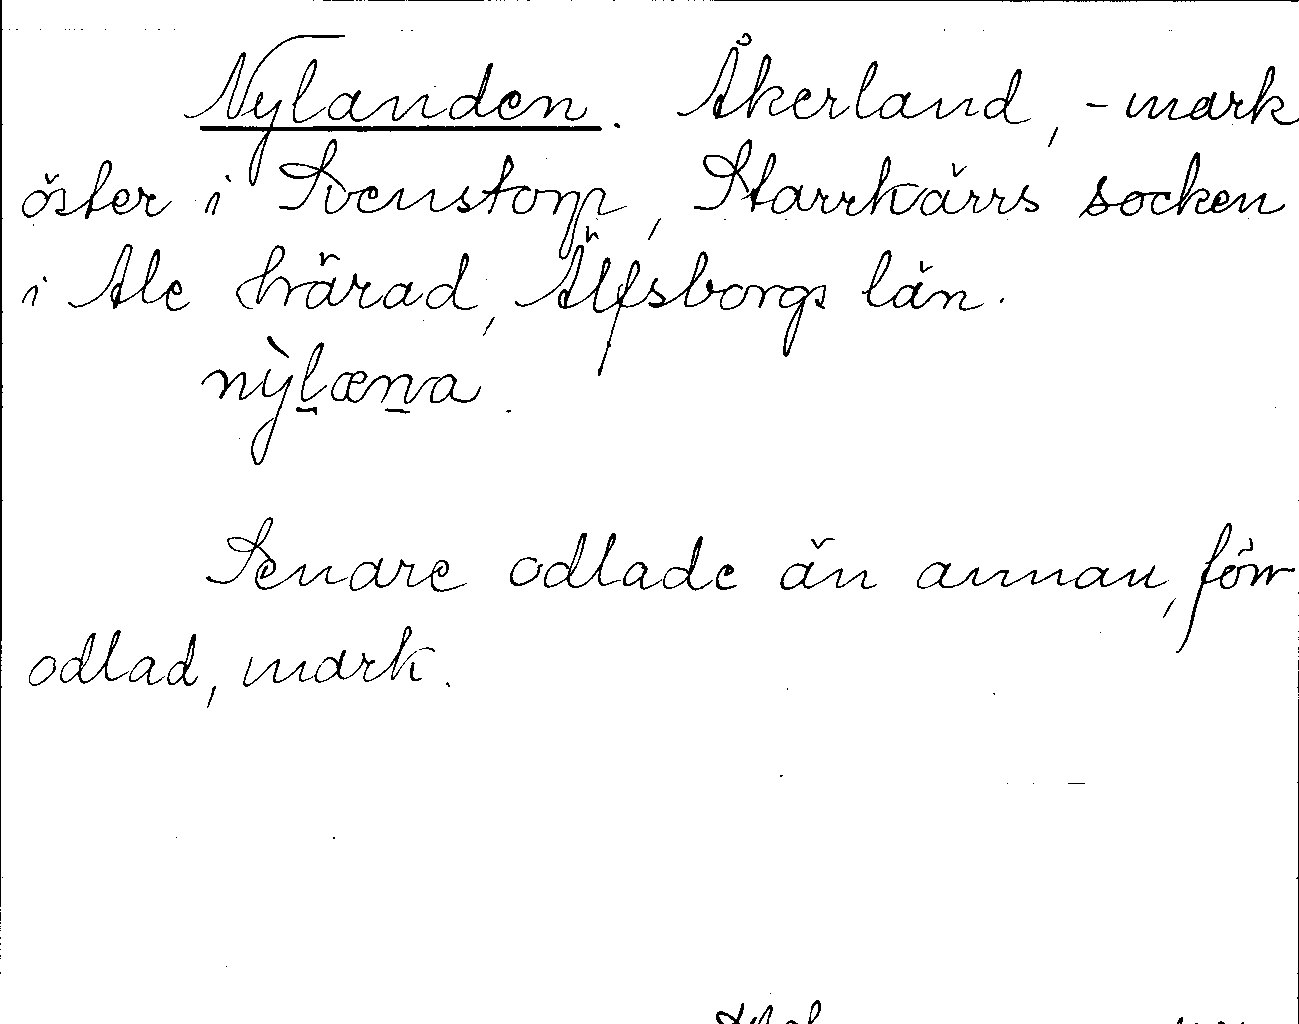 Nylanden. Åkerland, -mark
öster i Svenstorp, Starrkärrs socken
i Ale härad, Älfsborgs län.
nỳl̠æn̠a.
Senare odlade än annan, förr
odlad, mark.